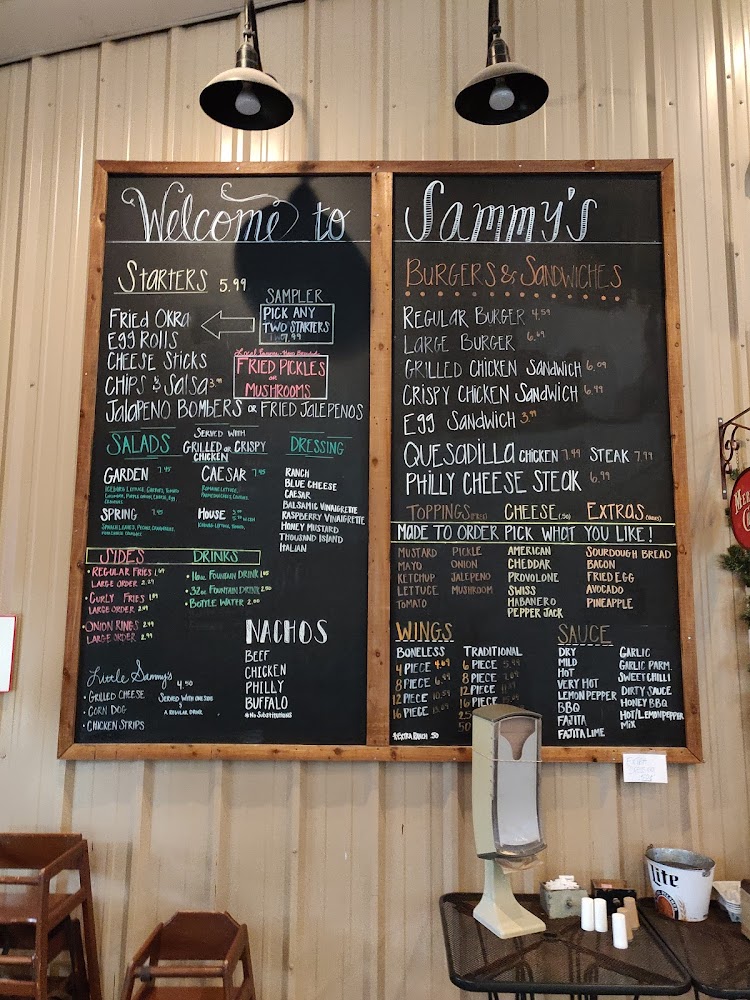 Welcome to
STARTERS 5.99
FRIED OKRA
EGG ROLLS
CHEESE STICKS
CHIPS & SALSA 3.99
JALAPENO BOMBERS OR FRIED JALEPENOS
SAMPLER
PICK ANY
TWO STARTERS
7.99
FRIED PICKLES
OR
MUSHROOMS
SALADS
SERVED WITH
GRILLED OR CRISPY
CHICKEN
DRESSING
GARDEN 7.95
CAESAR 7.95
SPRING 7.95
HOUSE
RANCH
BLUE CHEESE
CAESAR
BALSAMIC VINAIGRETTE
RASPBERRY VINAIGRETTE
HONEY MUSTARD
THOUSAND ISLAND
ITALIAN
SIDES
• REGULAR FRIES
LARGE ORDER
• CURLY FRIES
LARGE ORDER
• ONION RINGS 2.99
LARGE ORDER
DRINKS
• 16oz. FOUNTAIN DRINK
• 32oz. FOUNTAIN DRINK
• BOTTLE WATER 2.00
NACHOS
BEEF
CHICKEN
PHILLY
BUFFALO
*NO SUBSTITUTIONS
Little Sammy's 4.50
• GRILLED CHEESE
• CORN DOG
• CHICKEN STRIPS
SERVED WITH ONE SIDE
&
A REGULAR DRINK
Sammy's
BURGERS & SANDWICHES
REGULAR BURGER 4.59
LARGE BURGER 6.69
GRILLED CHICKEN SANDWICH 6.09
CRISPY CHICKEN SANDWICH 6.99
EGG SANDWICH 3.99
QUESADILLA CHICKEN 7.99 STEAK 7.99
PHILLY CHEESE STEAK 6.99
TOPPINGS
CHEESE (.50)
EXTRAS
MADE TO ORDER PICK WHAT YOU LIKE!
MUSTARD
MAYO
KETCHUP
LETTUCE
TOMATO
PICKLE
ONION
JALEPENO
MUSHROOM
AMERICAN
CHEDDAR
PROVOLONE
SWISS
HABANERO
PEPPER JACK
SOURDOUGH BREAD
BACON
FRIED EGG
AVOCADO
PINEAPPLE
WINGS
BONELESS
4 PIECE 4.69
8 PIECE
12 PIECE
16 PIECE
TRADITIONAL
6 PIECE
8 PIECE
12 PIECE
16 PIECE
25
50
*EXTRA RANCH .50
SAUCE
DRY
MILD
HOT
VERY HOT
LEMON PEPPER
BBQ
FAJITA
FAJITA LIME
GARLIC
GARLIC PARM.
SWEET CHILLI
DIRTY SAUCE
HONEY BBQ
HOT/LEMON PEPPER
MIX
Lite